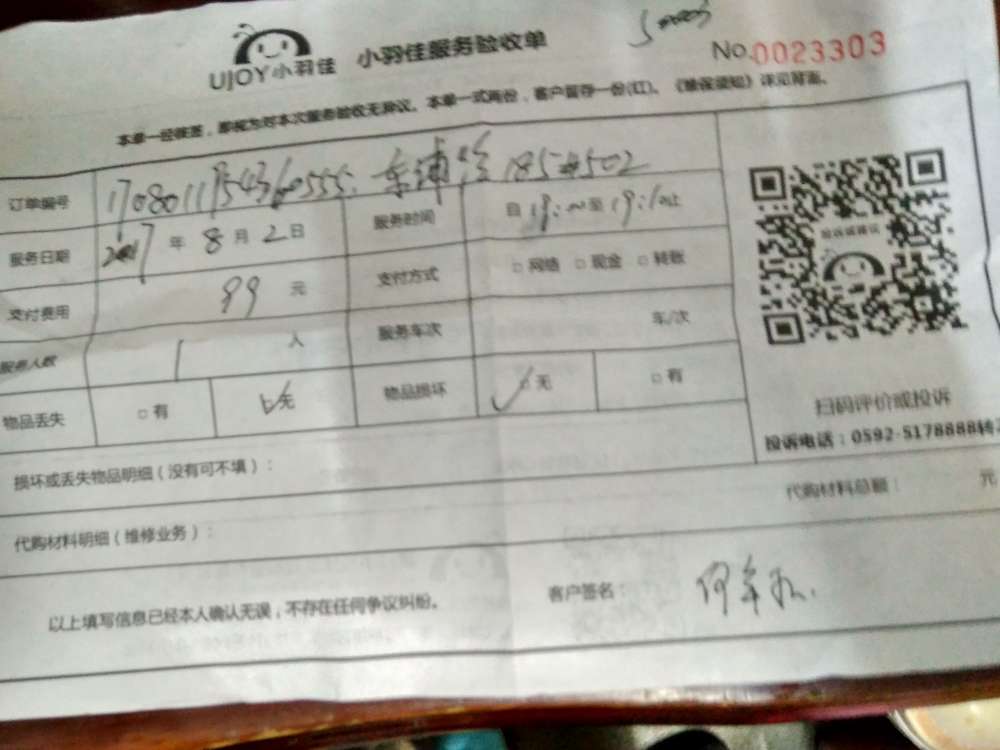 UJOY小羽佳 小羽佳服务验收单
No.0023303
本单一经签签，即视为对本次服务验收无异议。本单一式两份，客户留存一份(红)。《维保须知》详见背面。
订单编号 1708011954360555. 东浦路185#502
服务日期 2017年8月2日 服务时间 自19:00至19:10止
支付费用 99元 支付方式 □网络 □现金 □转账
服务人数 1人 服务车次 车/次
物品丢失 □有 ☑无 物品损坏 ☑无 □有
投诉或建议
扫码评价或投诉
投诉电话：0592-5178888转
损坏或丢失物品明细（没有可不填）：
代购材料明细（维修业务）： 代购材料总额： 元
以上填写信息已经本人确认无误，不存在任何争议纠纷。 客户签名：